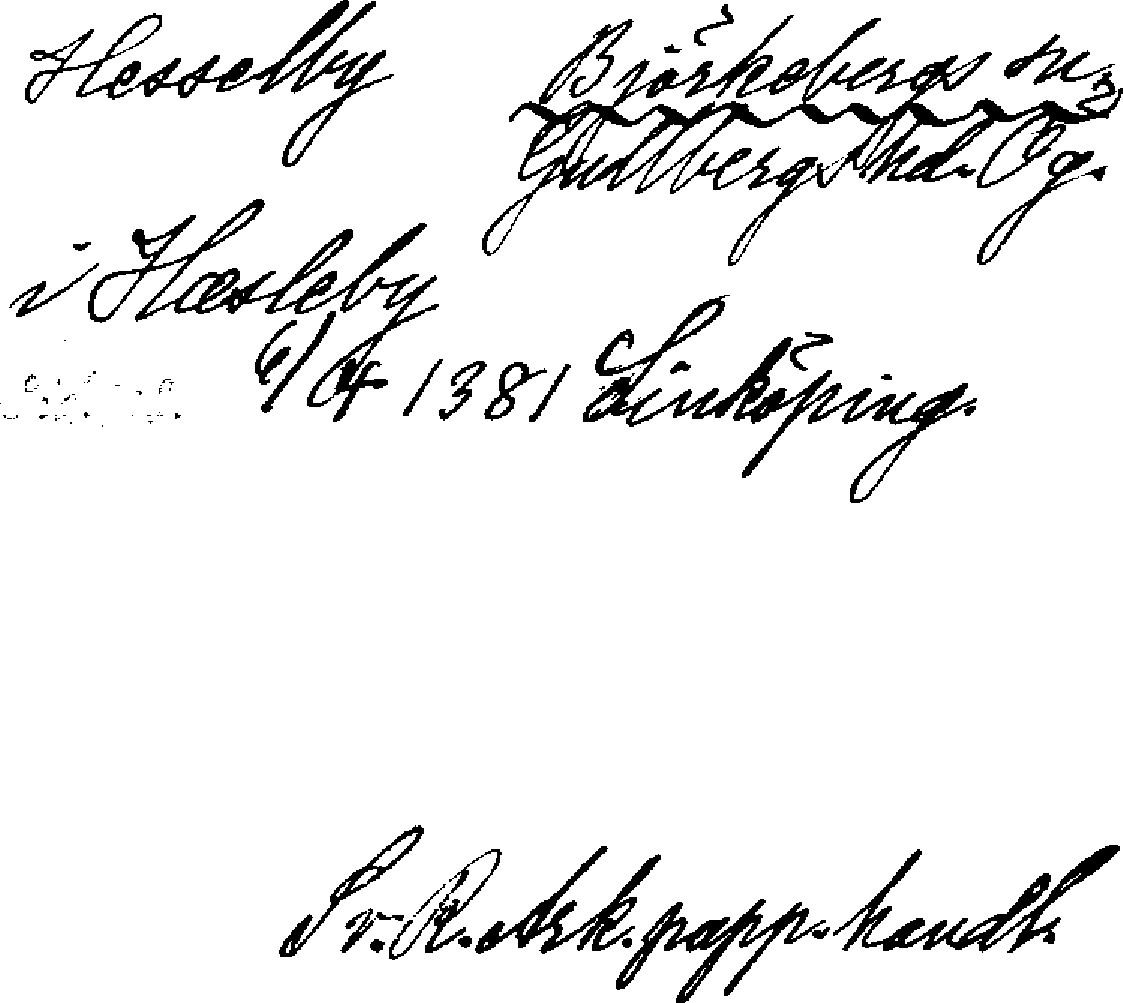 Hesselby Björkebergs sn,
Gullbergs hd. Ög.
i Hæsleby
6/4 1381 Linköping.
Sv. R. Ark. papp. handl.